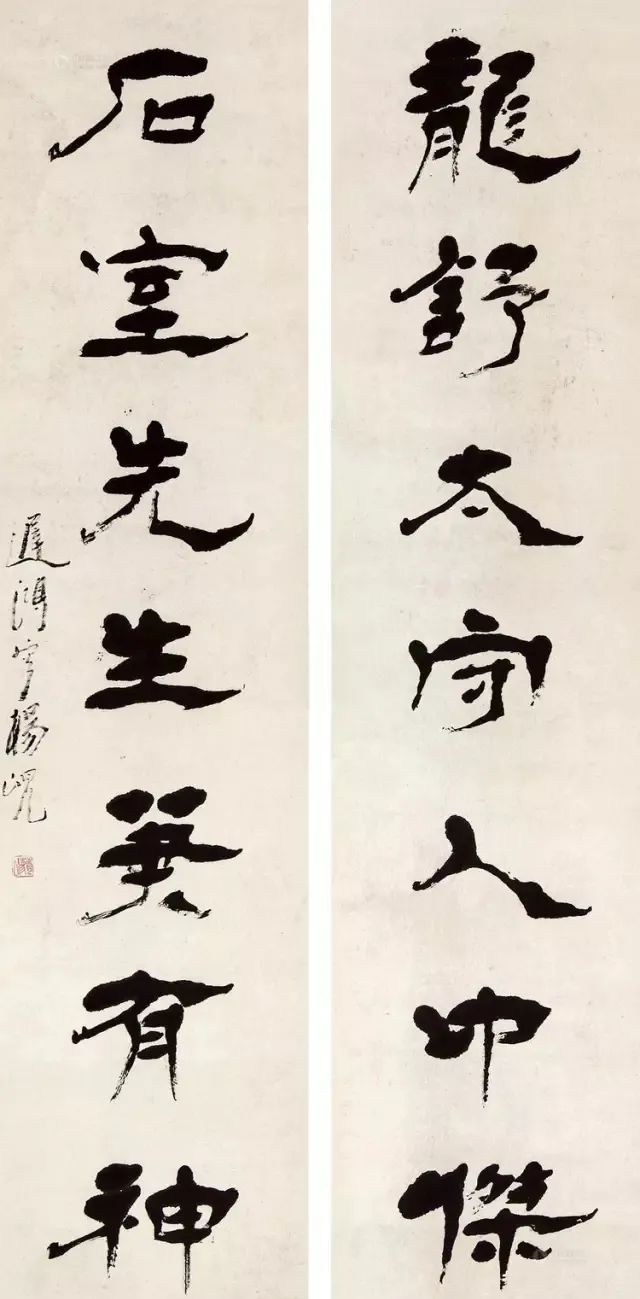 龍舒太守人中傑
石室先生筆有神
遲楊峴